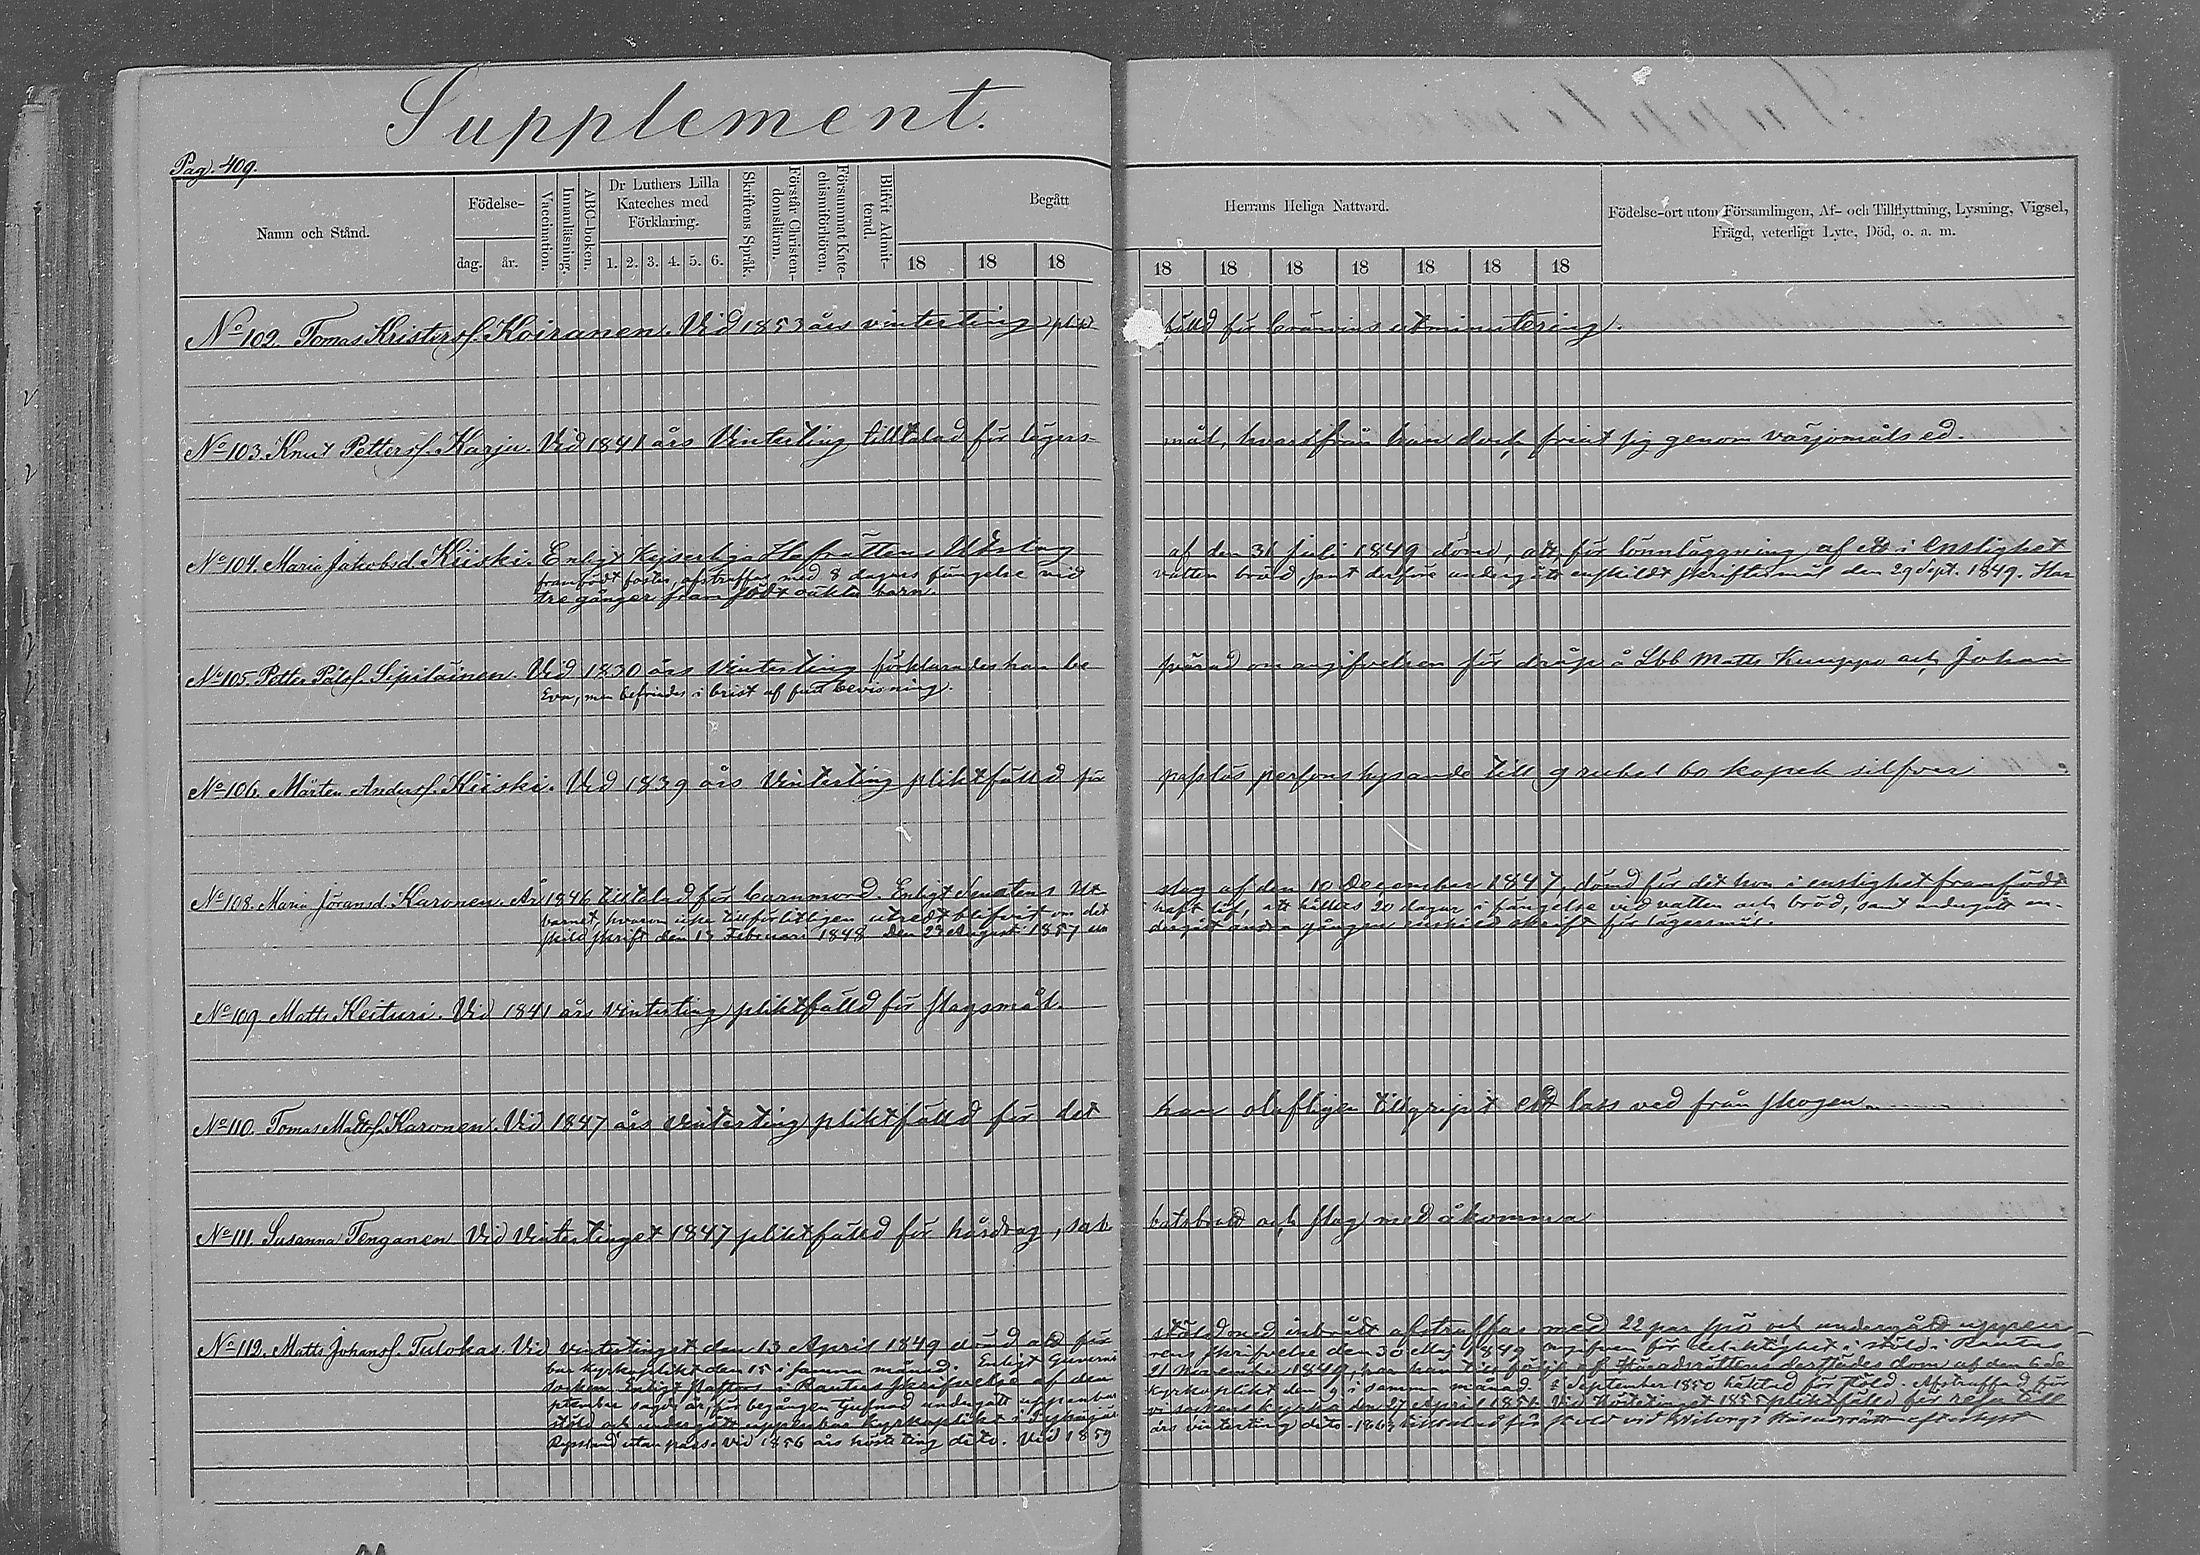 Supplement.
Pag. 409.
Namn och Stånd.
Födelse-
dag. år.
Vaccination.
Innanläsning.
ABC-boken.
Dr Luthers Lilla
Kateches med
Förklaring.
1. 2. 3. 4. 5. 6.
Skriftens Språk.
Förstår Christen-
domsläran.
Försummat Kate-
chismiförhören.
Blifvit Admit-
terad.
Begått Herrans Heliga Nattvard.
18 18 18 18 18 18 18 18 18 18
Födelse-ort utom Församlingen, Af- och Tillflyttning, Lysning, Vigsel,
Frägd, veterligt Lyte, Död, o. a. m.
No 102. Tomas Kristersf. Koiranen. Vid 1853 års vinterting plikt fälld för bränvins utminutering.
No 103. Knut Pettersf. Karju. Vid 1841 års Vinterting tilltalad för lägers- mål, hvarifrån han doch friat sig genom värjomåls ed.
No 104. Maria Jakobsd. Kiiski. Enligt Kejserliga Hofrättens Utslag af den 31 Juli 1849 dömd, att för lönnläggning af ett i enslighet
framfödt foster, afstraffas med 8 dagars fängelse vid vatten bröd, samt derföre undergått enskildt skriftermål den 29 Sept. 1849. Har
tre gånger framfödt oäkta barn.
No 105. Petter Pålsf. Sipiläinen. Vid 1830 års Vinterting förklarades han be svärad om angifvelsen för dråp å Lbb Matts Kumppo och Johan
Eva, men befriades i brist af full bevisning.
No 106. Mårten Andersf. Kiiski. Vid 1839 års Vinterting pliktfälld för passlös persons hysande till 9 rubel 60 kopek silfver
No 108. Maria Jöransd. Karonen. År 1846 tilltalad för barnmord. Enligt Senatens Ut slag af den 10 December 1847, dömd för det hon i enslighet framfödt
barnet, hvarom icke tillförlitligen utredt blifvit om det haft lif, att hållas 20 dagar i fängelse vid vatten och bröd, samt undergått en-
skild skrift den 13 Februari 1848. Den 23 Augusti 1857 un dergått andra gången enskild skrift för lägersmål.
No 109. Matts Keituri. Vid 1841 års Vinterting pliktfälld för slagsmål.
No 110. Tomas Mattsf. Karonen. Vid 1847 års vinterting pliktfälld för det han olofligen tillgripit ett lass ved från skogen.
No 111. Susanna Tenganen Vid Vintertinget 1847 pliktfälld för hårdrag, sab batsbrott och slag med åkomma
No 112. Matts Johansf. Tulokas. Vid Vintertinget den 13 April 1849 dömd att för stöld med inbrott afstraffas med 22 par spö och undergått uppen-
bar kyrkoplikt den 15 i samma månad. Enligt Guvernö rens skrifvelse den 30 Maj 1849 angifven för delaktighet i stöld i Rautus
socken. Enligt Pastors i Rautus skrifvelse af den 21 November 1849, har han till följe af Häradsrättens derstädes dom af den 6 Se
ptember sagde år, för begången tjufnad undergått uppenbar kyrkoplikt den 9 i samma månad. September 1850 häktad för stöld. Afstraffad för
stöld och undergått uppenbar kyrkoplikt i socknens kyrka den 27 April 1851. Vid Hösttinget 1855 pliktfälld för resa till
Ryssland utan pass. Vid 1856 års hösteting dito. Vid 1859 års vinterting dito. 1863 tilltalad för stöld vid Wiborgs